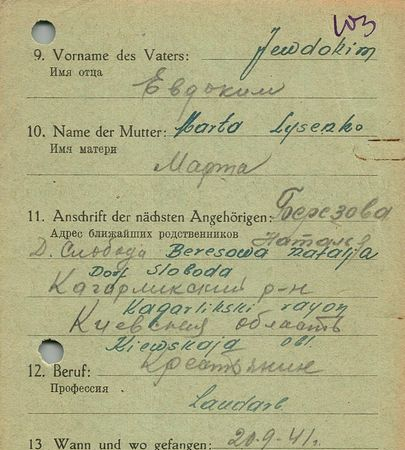 103
9. Vorname des Vaters: Jewdokim
Имя отца
Евдоким
10. Name der Mutter: Marta Lysenko
Имя матери
Марта
11. Anschrift der nächsten Angehörigen: Березова
Адрес ближайших родственников Наталья
Д. Слобода Beresowa Natalja
Dorf Sloboda
Кагарликский р-н
Kagarlikski rayon
Киевская область
Kiewskaja obl.
12. Beruf: Крестьянин
Профессия
Landarb.
13 Wann und wo gefangen: 20.9-41г.